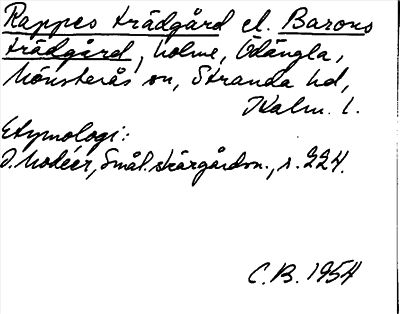 Rappes trädgård el. Barons
trädgård, holme, Ödängla,
Mönsterås sn, Stranda hd,
Kalm. l.
Etymologi:
I. Modéer, Smål. skärgårdsn., s. 224.
C.B. 1954